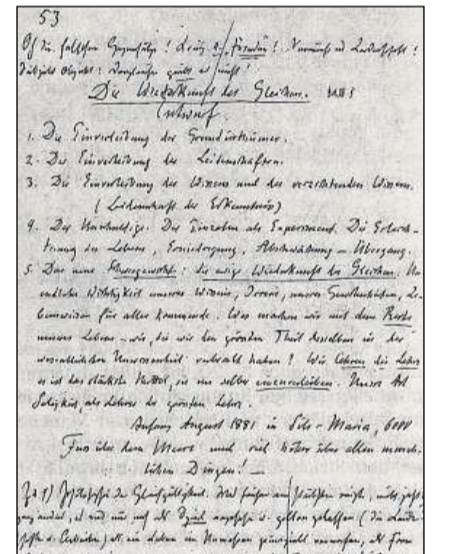 53
Oh die falschen Gegensätze! Krieg u. „Frieden“! Vernunft und Leidenschaft!
Subjekt Objekt: dergleichen giebt es nicht!
Die Wiederkunft des Gleichen.
Entwurf
1. Die Einverleibung der Grundirrthümer.
2. Die Einverleibung der Leidenschaften.
3. Die Einverleibung des Wissens und des verzichtenden Wissens.
( Leidenschaft der Erkenntniss)
4. Der Unschuldige. Der Einzelne als Experiment. Die Erleich-
terung des Lebens, Erniedrigung, Abschwächung – Übergang.
5. Das neue Schwergewicht: die ewige Wiederkunft des Gleichen. Un-
endliche Wichtigkeit unseres Wissens, Irrens, unsrer Gewohnheiten, Le-
bensweisen für alles Kommende. Was machen wir mit dem Reste
unseres Lebens – wir, die wir den grössten Theil desselben in der
wesentlichsten Unwissenheit verbracht haben? Wir lehren die Lehre
es ist das stärkste Mittel, sie uns selber einzuverleiben. Unsre Art
Seligkeit, als Lehrer der grössten Lehre.
Anfang August 1881 in Sils-Maria, 6000
Fuss über dem Meere und viel höher über allen mensch-
lichen Dingen!
Zu 4) Philosophie der Gleichgültigkeit. Was früher am stärksten reizte, wirkt jetzt
ganz anders, es wird nur noch als Spiel angesehn u. gelten gelassen (die Leiden-
schaften u. Arbeiten) als ein Leben im Unwahren principiell verworfen, als Form